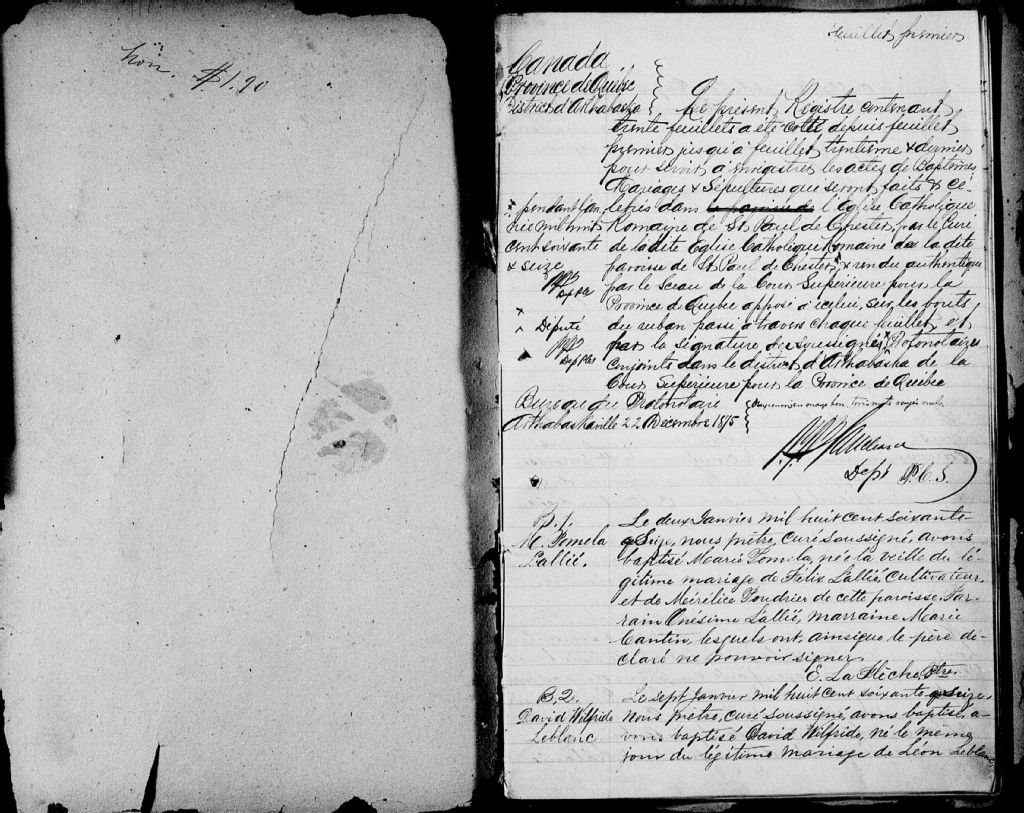 $1.90
feuillet premier
Canada
Province de Québec
District d'Arthabaska
Le présent Registre contenant
trente feuillets a été coté depuis feuillet
premier jusqu'à feuillet trentième & dernier
pour servir à enregistrer les actes de Baptêmes
Mariages & Sépultures que seront faits & cé-
lebrés dans l'Eglise Catholique
Romaine de St Paul de Chester, par le Curé
de la dite Eglise Catholique Romaine de la dite
paroisse de St Paul de Chester, x & rendu authentique
par le Sceau de la Cour Supérieure pour la
Province de Québec apposé à icelui, sur les bouts
du ruban passé à travers chaque feuillet, et
par la signature des soussignés x Protonotaire
conjoints dans le district d'Arthabaska de la
Cour Supérieure pour la Province de Québec
x pendant l'an
née mil huit
cent soixante
& seize
Dep
x Député
Dep
Bureau du Protonotaire
Arthabaskaville 22 Decembre 1875
Dept P.C.S.
B. 1.
M. Pomela
Lallié.
Le deux Janvier mil huit cent soixante-
&Seize, nous prêtre, curé soussigné, avons
baptisé Marie Pomela, née la veille du lé-
gitime mariage de Félix Lallié, Cultivateur,
et de Mérélice Poudrier de cette paroisse. Par-
rain Onésime Lallié, marraine Marie
Cantin, lesquels ont, ainsique le père dé-
claré ne pouvoir signer
E. LaFlèche, Ptre.
B. 2.
David Wilfride
Leblanc
Le sept Janvier mil huit cent soixante & Seize,
nous prêtre, curé soussigné, avons baptisé, a-
vons baptisé David Wilfride, né le meme
jour du légitime mariage de Léon Leblanc